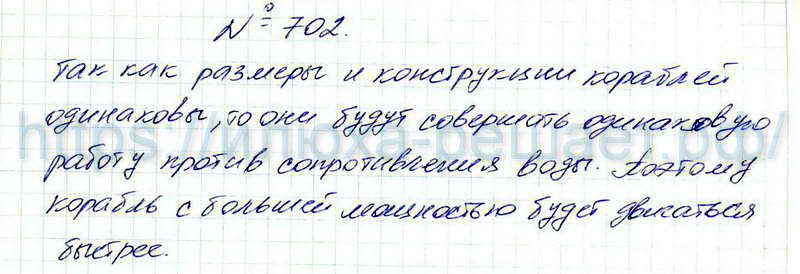 № 702.
Так как размеры и конструкции кораблей
одинаковы, то они будут совершать одинаковую
работу против сопротивления воды. Поэтому
корабль с большей мощностью будет двигаться
быстрее.